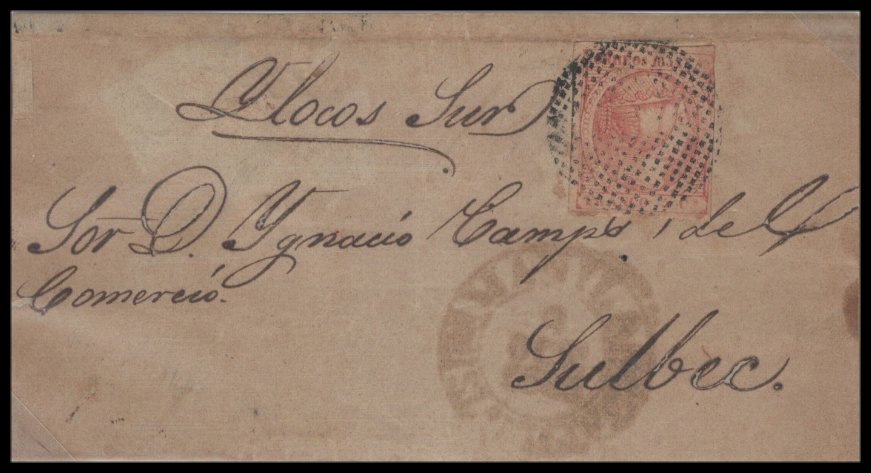 Ylocos Sur
Sor D. Ygnacio Camps, del
Comercio.
Sulbec.